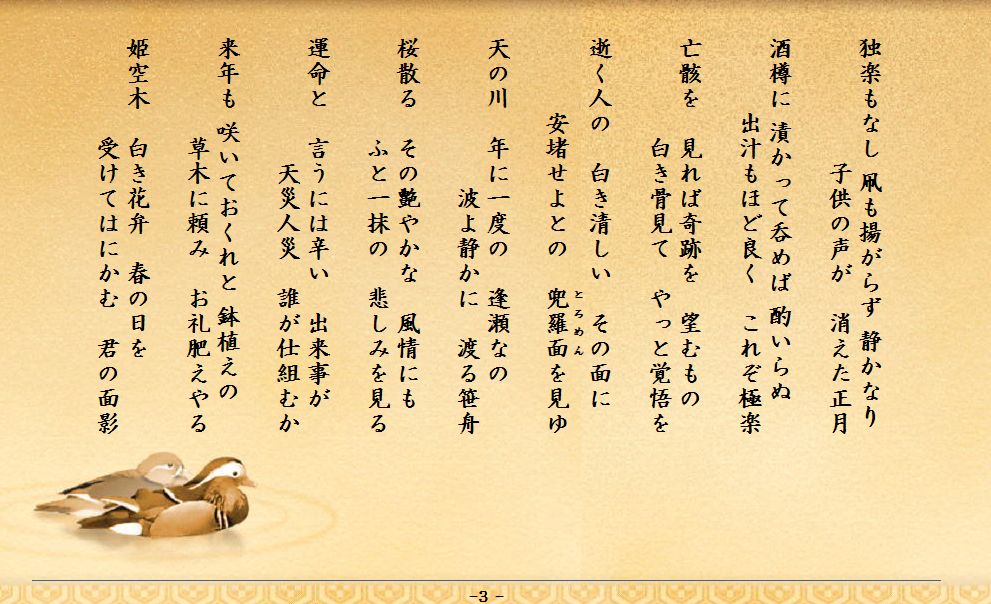 独楽もなし 凧も揚がらず 静かなり
子供の声が 消えた正月
酒樽に 漬かって呑めば 酌いらぬ
出汁もほど良く これぞ極楽
亡骸を 見れば奇跡を 望むもの
白き骨見て やっと覚悟を
逝く人の 白き清しい その面に
安堵せよとの 兜羅面を見ゆ
とろめん
天の川 年に一度の 逢瀬なの
波よ静かに 渡る笹舟
桜散る その艶やかな 風情にも
ふと一抹の 悲しみを見る
運命と 言うには辛い 出来事が
天災人災 誰が仕組むか
来年も 咲いておくれと 鉢植えの
草木に頼み お礼肥えやる
姫空木 白き花弁 春の日を
受けてはにかむ 君の面影
-3 -